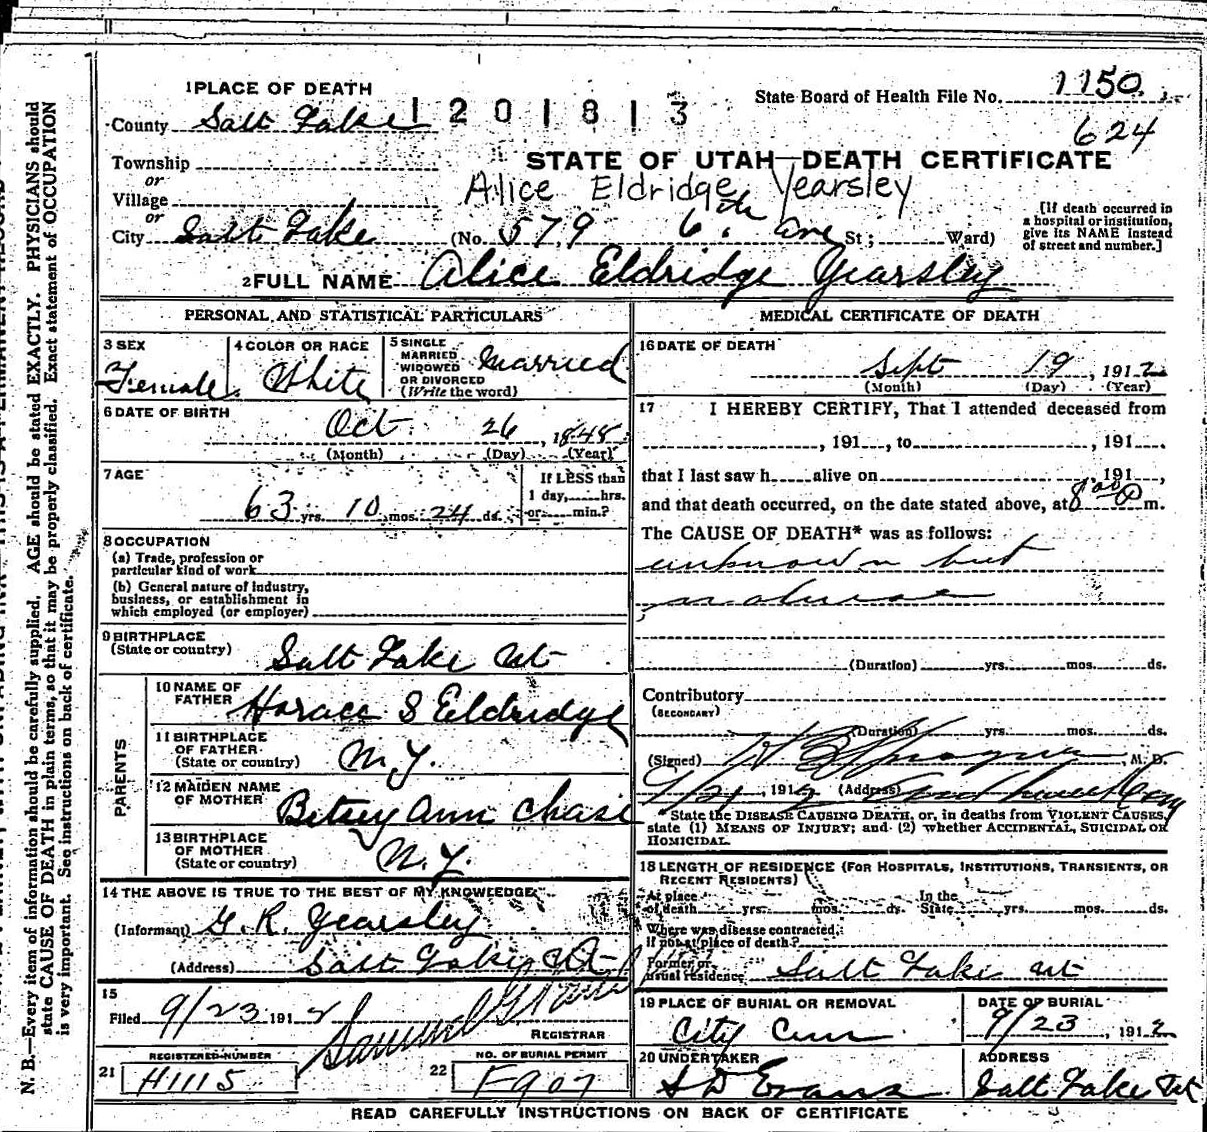 1 PLACE OF DEATH
State Board of Health File No. 1150
County Salt Lake
1201813
624
Township
STATE OF UTAH—DEATH CERTIFICATE
or
Village
Alice Eldridge Yearsley
or
City Salt Lake (No. 579 6th Ave St; Ward)
[If death occurred in
a hospital or institution,
give its NAME instead
of street and number.]
2 FULL NAME Alice Eldridge Yearsley
PERSONAL AND STATISTICAL PARTICULARS
3 SEX
Female
4 COLOR OR RACE
White
5 SINGLE
MARRIED
WIDOWED
OR DIVORCED
(Write the word)
Married
6 DATE OF BIRTH
Oct. 26, 1848
(Month) (Day) (Year)
7 AGE
63 yrs. 10 mos. 24 ds.
If LESS than
1 day, hrs.
or min.?
8 OCCUPATION
(a) Trade, profession or
particular kind of work
(b) General nature of industry,
business, or establishment in
which employed (or employer)
9 BIRTHPLACE
(State or country)
Salt Lake Ut
PARENTS
10 NAME OF
FATHER
Horace S Eldridge
11 BIRTHPLACE
OF FATHER
(State or country)
N.Y.
12 MAIDEN NAME
OF MOTHER
Betsey Ann Chase
13 BIRTHPLACE
OF MOTHER
(State or country)
N.Y.
14 THE ABOVE IS TRUE TO THE BEST OF MY KNOWLEDGE
(Informant) G. R. Yearsley
(Address) Salt Lake, Ut
15
Filed 9/23 1912
Samuel G
REGISTRAR
REGISTERED NUMBER
21 H1115
NO. OF BURIAL PERMIT
22 F907
MEDICAL CERTIFICATE OF DEATH
16 DATE OF DEATH
Sept 19, 1912
(Month) (Day) (Year)
17 I HEREBY CERTIFY, That I attended deceased from
, 191 , to , 191 .
that I last saw h alive on , 191 ,
and that death occurred, on the date stated above, at 8 00 P m.
The CAUSE OF DEATH* was as follows:
unknown but
natural
(Duration) yrs. mos. ds.
Contributory
(SECONDARY)
(Duration) yrs. mos. ds.
(Signed) H B Sprague, M. D.
9/21, 1912 (Address)
State the DISEASE CAUSING DEATH, or, in deaths from VIOLENT CAUSES,
state (1) MEANS OF INJURY; and (2) whether ACCIDENTAL, SUICIDAL OR
HOMICIDAL.
18 LENGTH OF RESIDENCE (FOR HOSPITALS, INSTITUTIONS, TRANSIENTS, OR
RECENT RESIDENTS)
At place
of death yrs. mos. ds.
In the
State yrs. mos. ds.
Where was disease contracted,
if not at place of death?
Former or
usual residence Salt Lake Ut
19 PLACE OF BURIAL OR REMOVAL
City Cem
DATE OF BURIAL
9/23, 1912
20 UNDERTAKER
S D Evans
ADDRESS
Salt Lake Ut
READ CAREFULLY INSTRUCTIONS ON BACK OF CERTIFICATE
N. B.—Every item of information should be carefully supplied. AGE should be stated EXACTLY. PHYSICIANS should
state CAUSE OF DEATH in plain terms, so that it may be properly classified. Exact statement of OCCUPATION
is very important. See instructions on back of certificate.